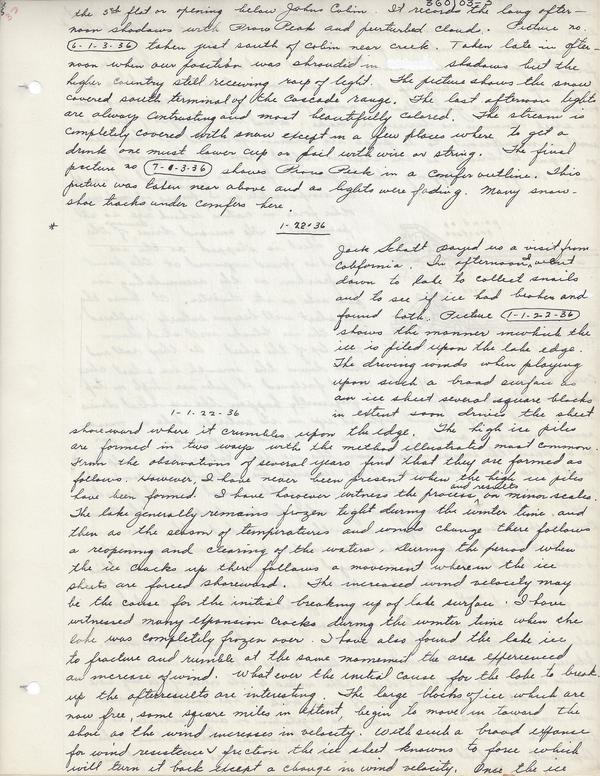 360103-P
the 3rd flat or opening below Johns Cabin. It records the long after-
noon shadows with Prow Peak and perturbed cloud. Picture no.
6-1-3-36 taken just south of cabin near creek. Taken late in after-
noon when our position was shrouded in shadows but the
higher country still receiving rays of light. The picture shows the snow
covered south terminal of the Cascade range. The last afternoon lights
are always contrasting and most beautifully colored. The stream is
completely covered with snow except in a few places where to get a
drink one must lower cup or pail with wire or string. The final
picture no 7-1-3-36 shows Prow Peak in a conifer outline. This
picture was taken near above and as lights were fading. Many snow-
shoe tracks under conifers here.
* 1-22-36
Jack Schatt payed us a visit from
California. In afternoon I went
down to lake to collect snails
and to see if ice had broken and
found both. Picture 1-1-22-36
shows the manner in which the
ice is piled upon the lake edge.
The driving winds when playing
upon such a broad surface as
an ice sheet several square blocks
1-1-22-36 in extent soon drives the sheet
shoreward where it crumbles upon the edge. The high ice piles
are formed in two ways with the method illustrated most common.
From the observations of several years find that they are formed as
follows. However, I have never been present when the high ice piles
have been formed. I have however witness the process and results on minor scales.
The lake generally remains frozen tight during the winter time and
then as the season of temperatures and winds change there follows
a reopening and clearing of the waters. During the period when
the ice cracks up there follows a movement wherein the ice
sheets are forced shoreward. The increased wind velocity may
be the cause for the initial breaking up of lake surface. I have
witnessed many expansion cracks during the winter time when the
lake was completely frozen over. I have also found the lake ice
to fracture and rumble at the same moment the area experienced
an increase of wind. What ever the initial cause for the lake to break
up the after results are interesting. The large blocks of ice which are
now free, some square miles in extent begin to move in toward the
shore as the wind increases in velocity. With such a broad expanse
for wind resistance & friction the ice sheet knowns to force which
will turn it back except a change in wind velocity. Once the ice